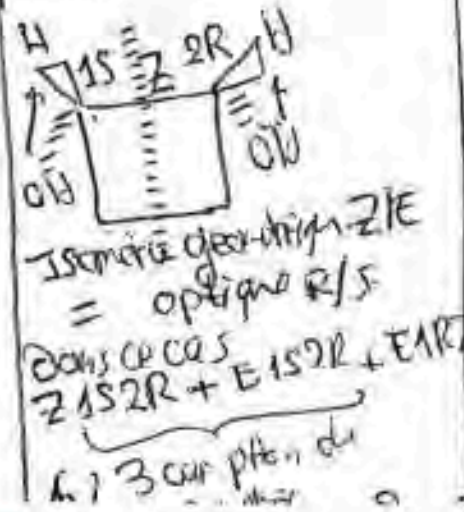 H 1S Z 2R H
OH OH
Isomérie géométrique Z/E
= optique R/S
Dans ce cas
Z1S2R + E1S2R + E1R
3 car